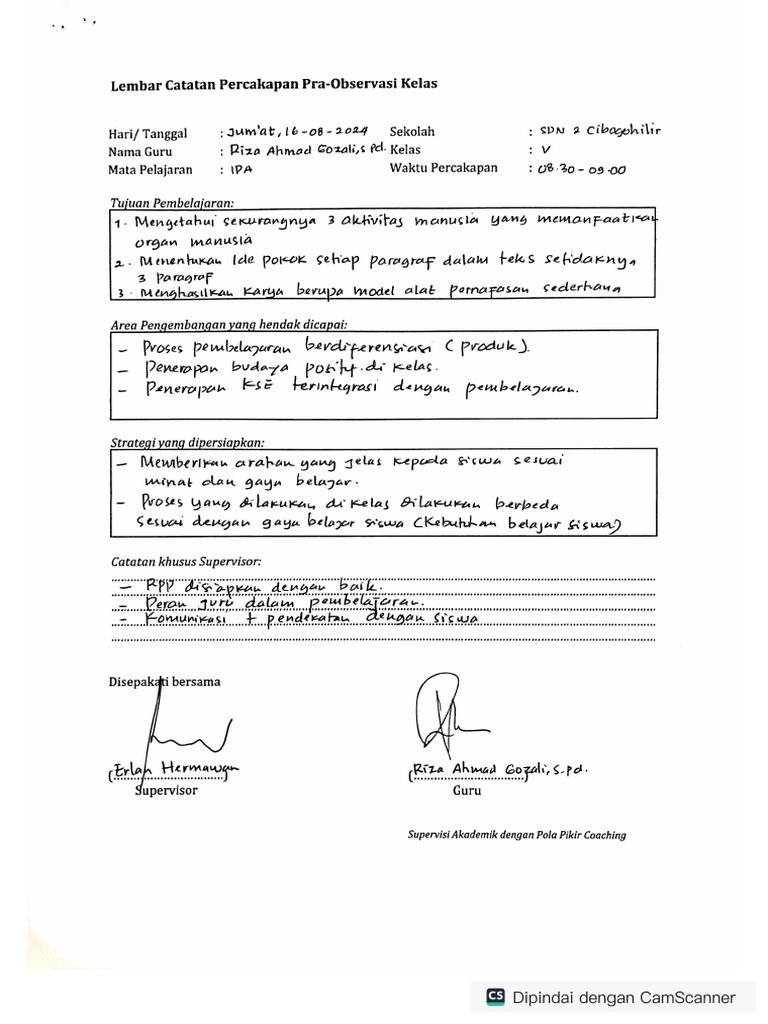 Lembar Catatan Percakapan Pra-Observasi Kelas
Hari/ Tanggal : Jum'at, 16-08-2024 Sekolah : SDN 2 Cibogohilir
Nama Guru : Riza Ahmad Gozali, S Pd. Kelas : V
Mata Pelajaran : IPA Waktu Percakapan : 08.30 - 09.00
Tujuan Pembelajaran:
1. Mengetahui sekurangnya 3 aktivitas manusia yang memanfaatkan
organ manusia
2. Menentukan Ide pokok setiap paragraf dalam teks setidakny,
3 paragraf
3. Menghasilkan karya berupa model alat pernafasan sederhana
Area Pengembangan yang hendak dicapai:
- Proses pembelajaran berdiferensiasi (produk).
- Penerapan budaya positif di kelas.
- Penerapan KSE terintegrasi dengan pembelajaran.
Strategi yang dipersiapkan:
- Memberikan arahan yang jelas kepada siswa sesuai
minat dan gaya belajar.
- Proses yang dilakukan di kelas dilakukan berbeda
sesuai dengan gaya belajar siswa (Kebutuhan belajar siswa)
Catatan khusus Supervisor:
- RPP disiapkan dengan baik.
- Peran guru dalam pembelajaran.
- Komunikasi + pendekatan dengan siswa
Disepakati bersama
(Erlan Hermawan (Riza Ahmad Gozali, S.pd.
Supervisor Guru
Supervisi Akademik dengan Pola Pikir Coaching
CS Dipindai dengan CamScanner